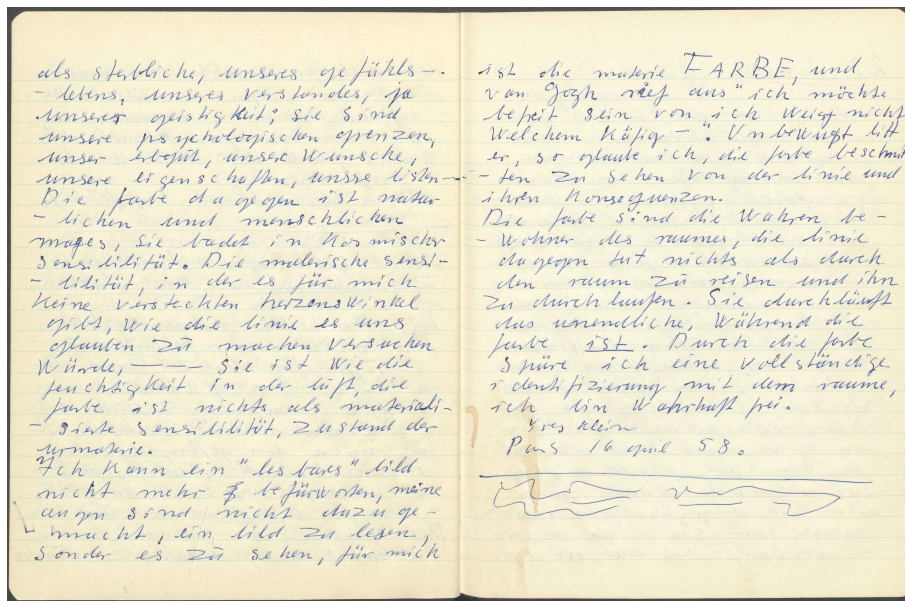 als sterbliche, unseres gefühls-
- lebens, unseres verstandes, ja
unserer geistigkeit; sie sind
unsere psychologischen grenzen,
unser erbgut, unsere wunsche,
unsere eigenschaften, unsre listen-
Die farbe dagegen ist natür
- lichen und menschlichen
mases, sie badet in kosmischer
sensibilität. Die malerische sensi-
- bilität, in der es für mich
keine versteckten herzenswinkel
gibt, wie die linie es uns
glauben zu machen versuchen
Würde, —— sie ist wie die
feuchtigkeit in der luft, die
farbe ist nichts als materiali-
- sierte sensibilität, zustand der
urmaterie.
Ich kann ein "lesbares" bild
nicht mehr befürworten, meine
augen sind nicht dazu ge-
macht, ein bild zu lesen,
sonder es zu sehen, für mich
ist die materie FARBE, und
van gogh rief aus "ich möchte
befreit sein von ich weiss nicht
welchem Käfig -". Unbewußt litt
er, so glaube ich, die farbe beschnit
- ten zu sehen von der linie und
ihren konsequenzen.
Die farbe sind die wahren be-
- wohner des raumes, die linie
dagegen tut nichts als durch
den raum zu reisen und ihn
zu durchlaufen. Sie durchläuft
das unendliche, während die
farbe ist. Durch die farbe
spüre ich eine vollständige
identifizierung mit dem raume,
ich bin wahrhaft frei.
Yves Klein
Paris 16 april 58.